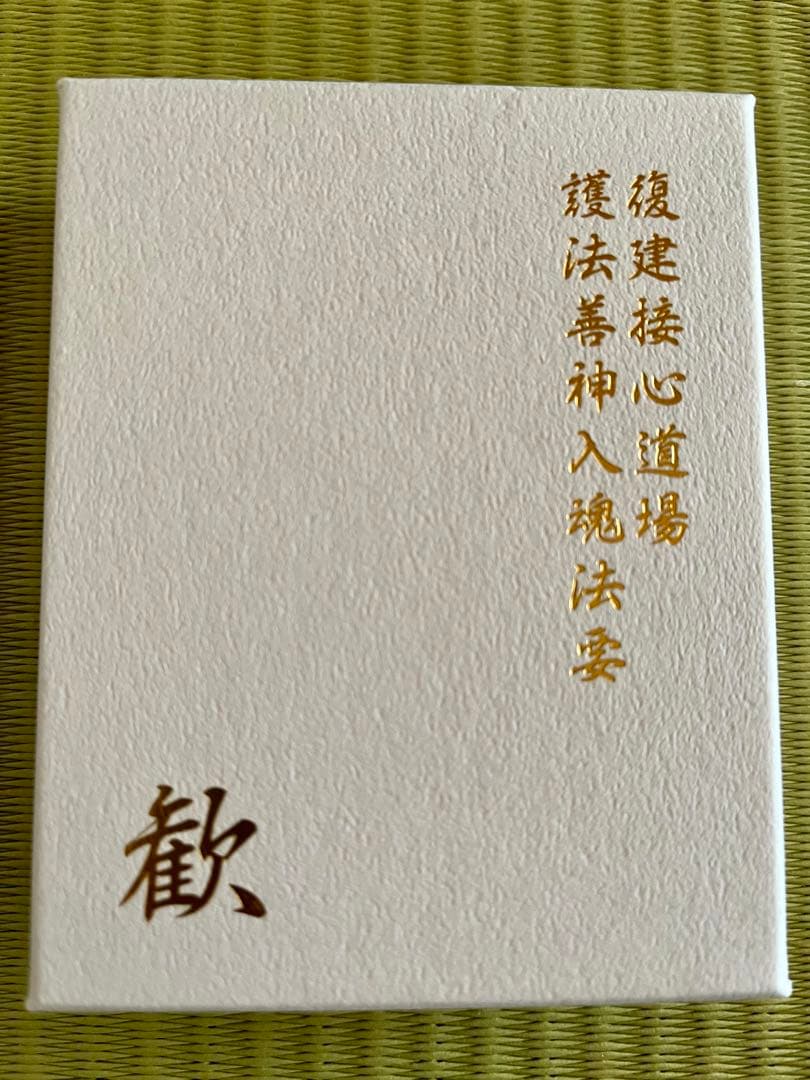 復建接心道場
護法善神入魂法要
歓